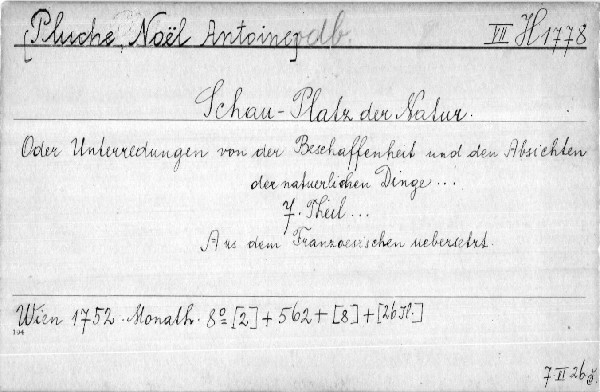 [Pluche, Noël Antoine] db. VII H 1778
Schau-Platz der Natur.
Oder Unterredungen von der Beschaffenheit und den Absichten
der natuerlichen Dinge...
7. Theil...
Aus dem Franzoesischen uebersetzt.
Wien 1752. Monath. 8º [2] + 562 + [8] + [26 Tl.]
104
7 II 26